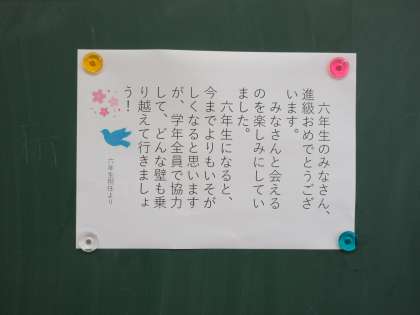 六年生のみなさん、
進級おめでとうござ
います。
みなさんと会える
のを楽しみにしてい
ました。
六年生になると、
今までよりもいそが
しくなると思います
が、学年全員で協力
して、どんな壁も乗
り越えて行きましょ
う！
六年生担任より